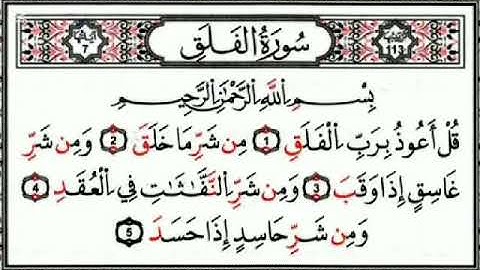 سُورَةُ الْفَلَقِ
113
بِسْمِ اللَّهِ الرَّحْمَٰنِ الرَّحِيمِ
قُلْ أَعُوذُ بِرَبِّ الْفَلَقِ 1 مِن شَرِّ مَا خَلَقَ 2 وَمِن شَرِّ
غَاسِقٍ إِذَا وَقَبَ 3 وَمِن شَرِّ النَّفَّاثَاتِ فِي الْعُقَدِ 4
وَمِن شَرِّ حَاسِدٍ إِذَا حَسَدَ 5